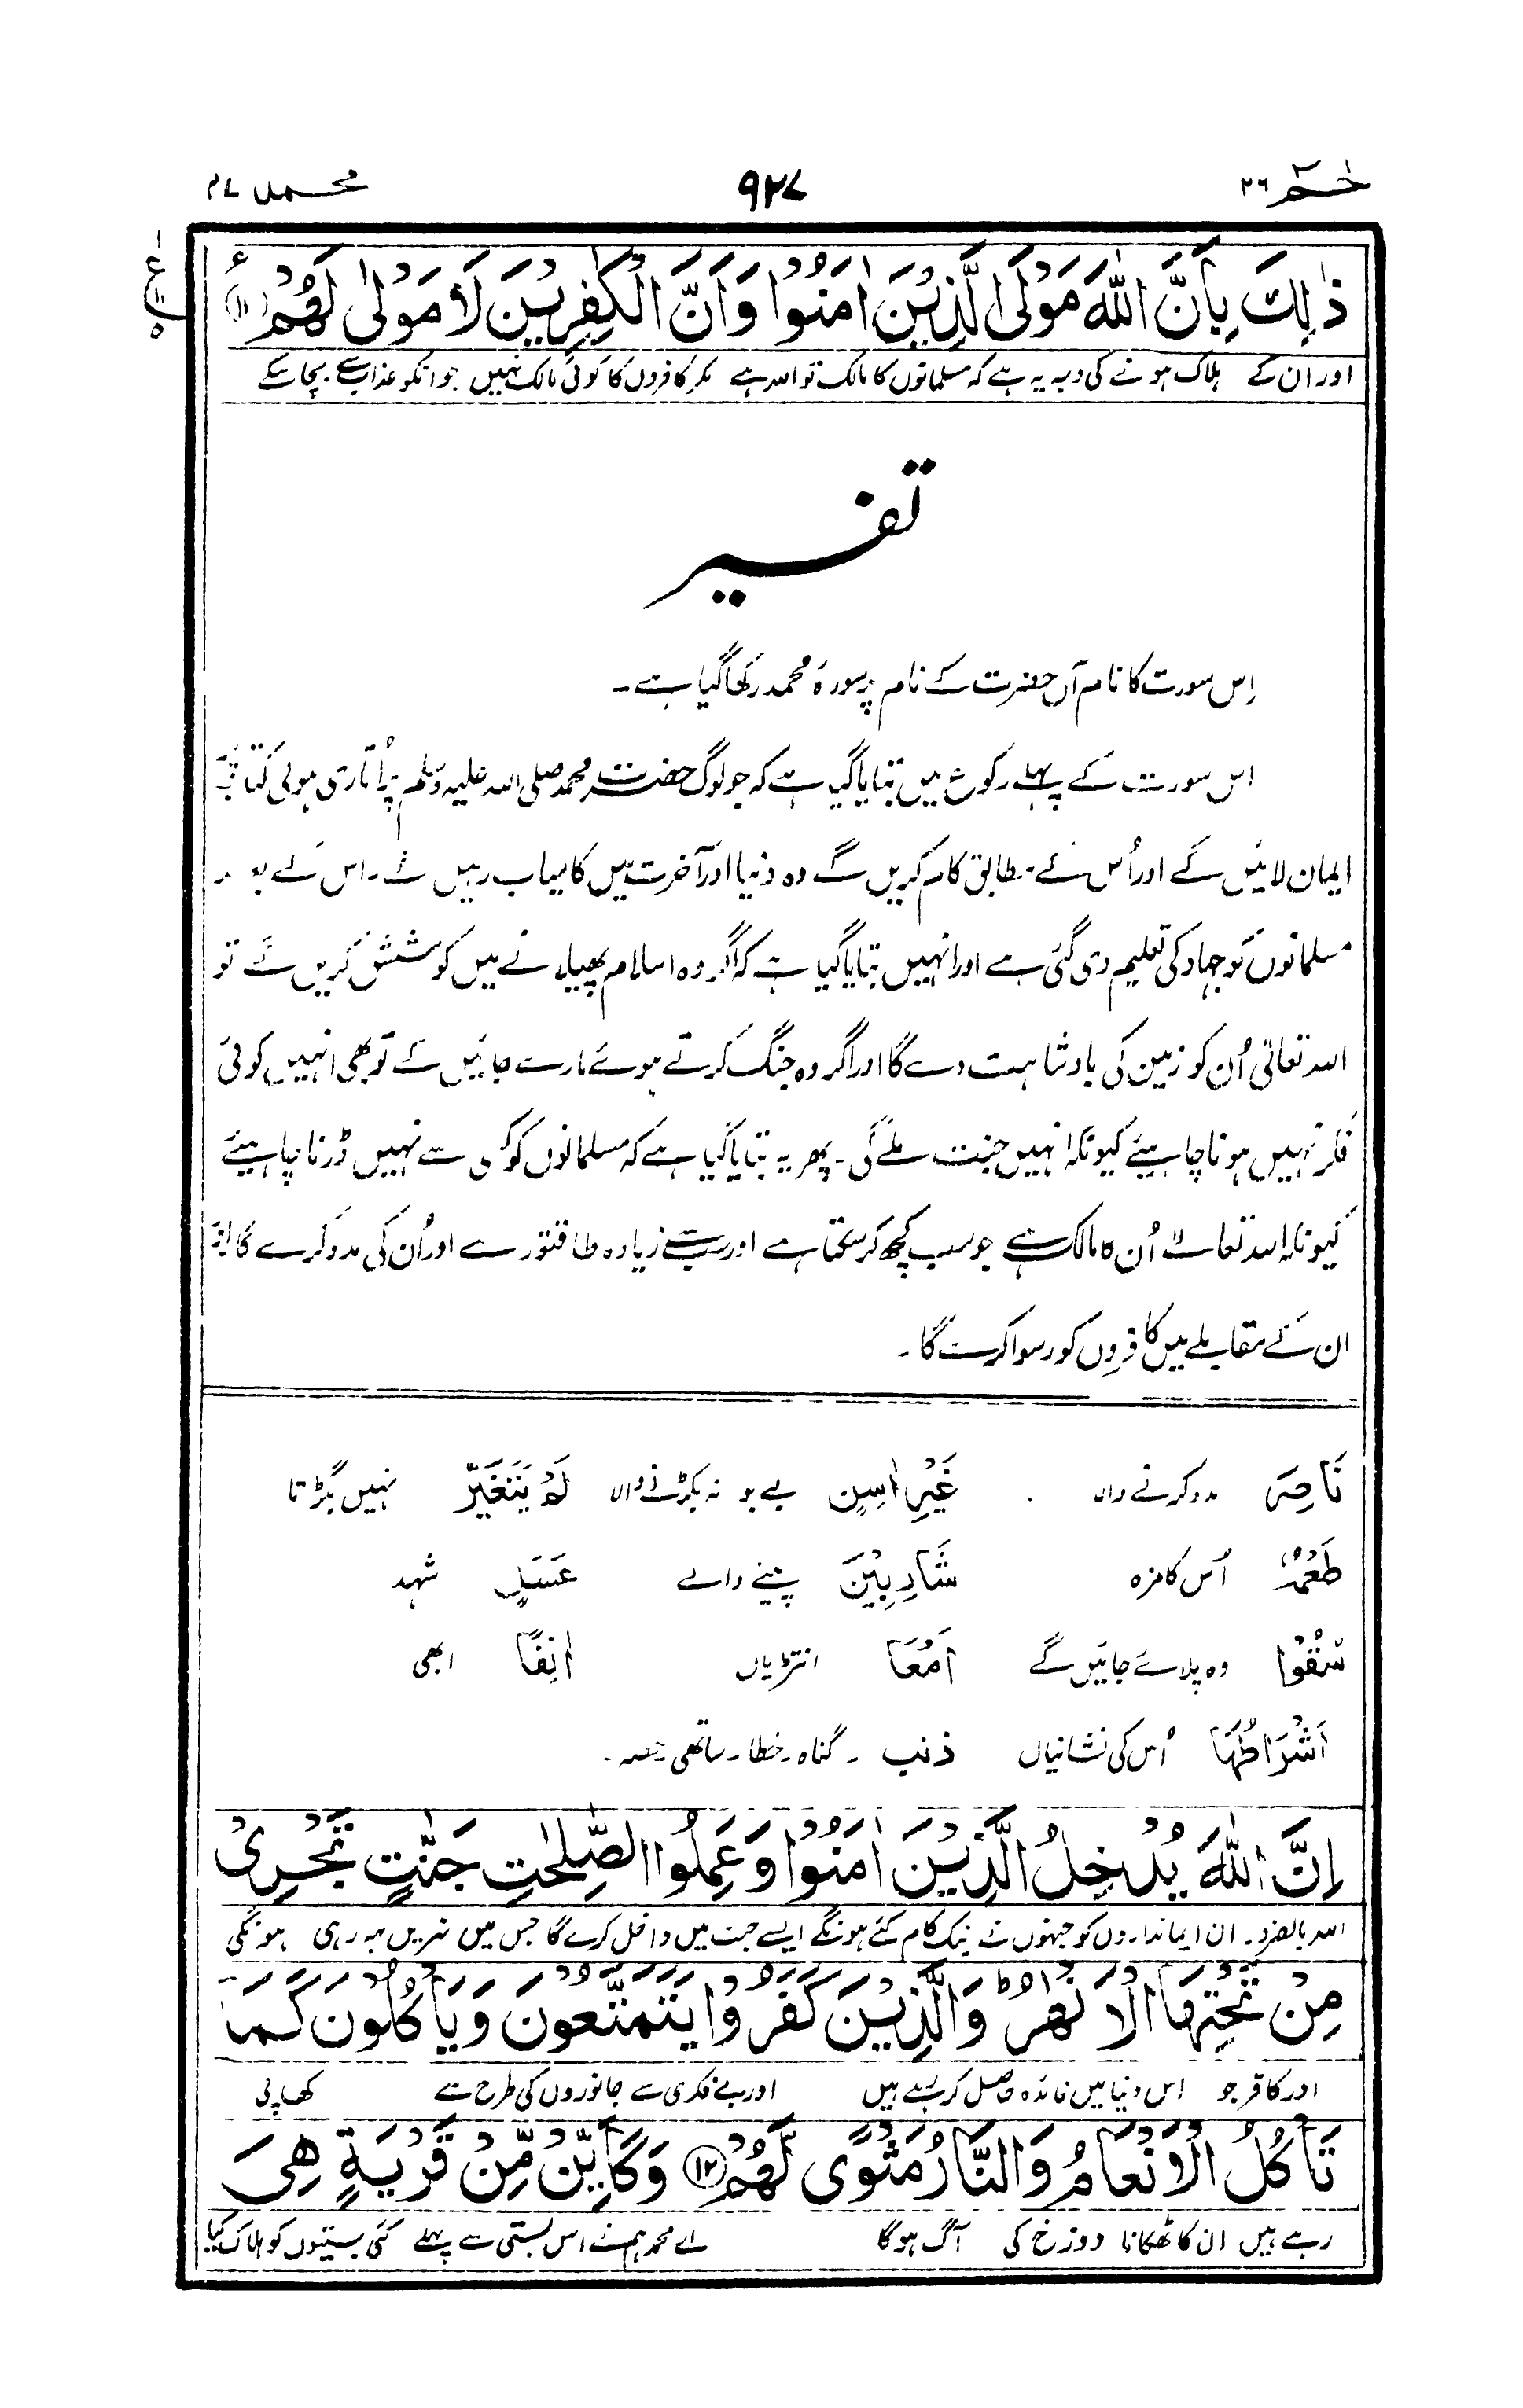 حٰمٓ ۲۶
۹۲۷
محمد ۴۷
ذٰلِكَ بِاَنَّ اللّٰهَ مَوْلَى الَّذِيْنَ اٰمَنُوْا وَاَنَّ الْكٰفِرِيْنَ لَا مَوْلٰى لَهُمْ ﴿۱۱﴾
ع
اور ان کے ہلاک ہونے کی وجہ یہ ہے کہ مسلمانوں کا مالک تو اللہ ہے مگر کافروں کا کوئی مالک نہیں جو انکو عذاب سے بچا سکے
تفسیر
اِس سورت کا نام آں حضرت کے نام پر سورۂ محمد رکھا گیا ہے۔
اس سورت کے پہلے رکوع میں بتایا گیا ہے کہ جو لوگ حضرت محمد صلی اللہ علیہ وسلم پر اُتاری ہوئی کتاب پر
ایمان لائیں گے اور اُس کے مطابق کام کریں گے وہ دنیا اور آخرت میں کامیاب رہیں گے۔ اس کے بعد
مسلمانوں کو جہاد کی تعلیم دی گئی ہے اور انہیں بتایا گیا ہے کہ اگر وہ اسلام پھیلانے میں کوشش کریں گے تو
اللہ تعالیٰ اُن کو زمین کی بادشاہت دے گا اور اگر وہ جنگ کرتے ہوئے مارے جائیں گے تو بھی انہیں کوئی
فکر نہیں ہونا چاہیئے کیونکہ انہیں جنت ملے گی۔ پھر یہ بتایا گیا ہے کہ مسلمانوں کو کسی سے نہیں ڈرنا چاہیئے
کیونکہ اللہ تعالےٰ اُن کا مالک ہے جو سب کچھ کر سکتا ہے اور سب سے زیادہ طاقتور ہے اور اُن کی مدد کرے گا اور
ان کے مقابلے میں کافروں کو رسوا کرے گا۔
نَاصِرَ مدد کرنے والا غَيْرِ اٰسِنٍ بے بو نہ بگڑنے والا لَمْ يَتَغَيَّرْ نہیں بگڑتا
طَعْمُهٗ اُس کا مزہ شَارِبِيْنَ پینے والے عَسَلٍ شہد
سُقُوْا وہ پلائے جائیں گے اَمْعَا انتڑیاں اٰنِفًا ابھی
اَشْرَاطُهَا اُس کی نشانیاں ذنب ۔ گناہ۔ خطا۔ ساتھی حصہ۔
اِنَّ اللّٰهَ يُدْخِلُ الَّذِيْنَ اٰمَنُوْا وَعَمِلُوا الصّٰلِحٰتِ جَنّٰتٍ تَجْرِىْ
اللہ بالضرور ان ایمانداروں کو جنہوں نے نیک کام کئے ہونگے ایسے جنت میں داخل کرے گا جس میں نہریں بہہ رہی ہونگی
مِنْ تَحْتِهَا الْاَنْهٰرُ ؕ وَالَّذِيْنَ كَفَرُوْا يَتَمَتَّعُوْنَ وَيَاْكُلُوْنَ كَمَا
اور کافر جو اس دنیا میں فائدہ حاصل کر رہے ہیں اور بے فکری سے جانوروں کی طرح سے کھا پی
تَاْكُلُ الْاَنْعَامُ وَالنَّارُ مَثْوًى لَّهُمْ ﴿۱۲﴾ وَكَاَيِّنْ مِّنْ قَرْيَةٍ هِىَ
رہے ہیں ان کا ٹھکانا دوزخ کی آگ ہوگا اے محمد ہم نے اس بستی سے پہلے کئی بستیوں کو ہلاک کیا